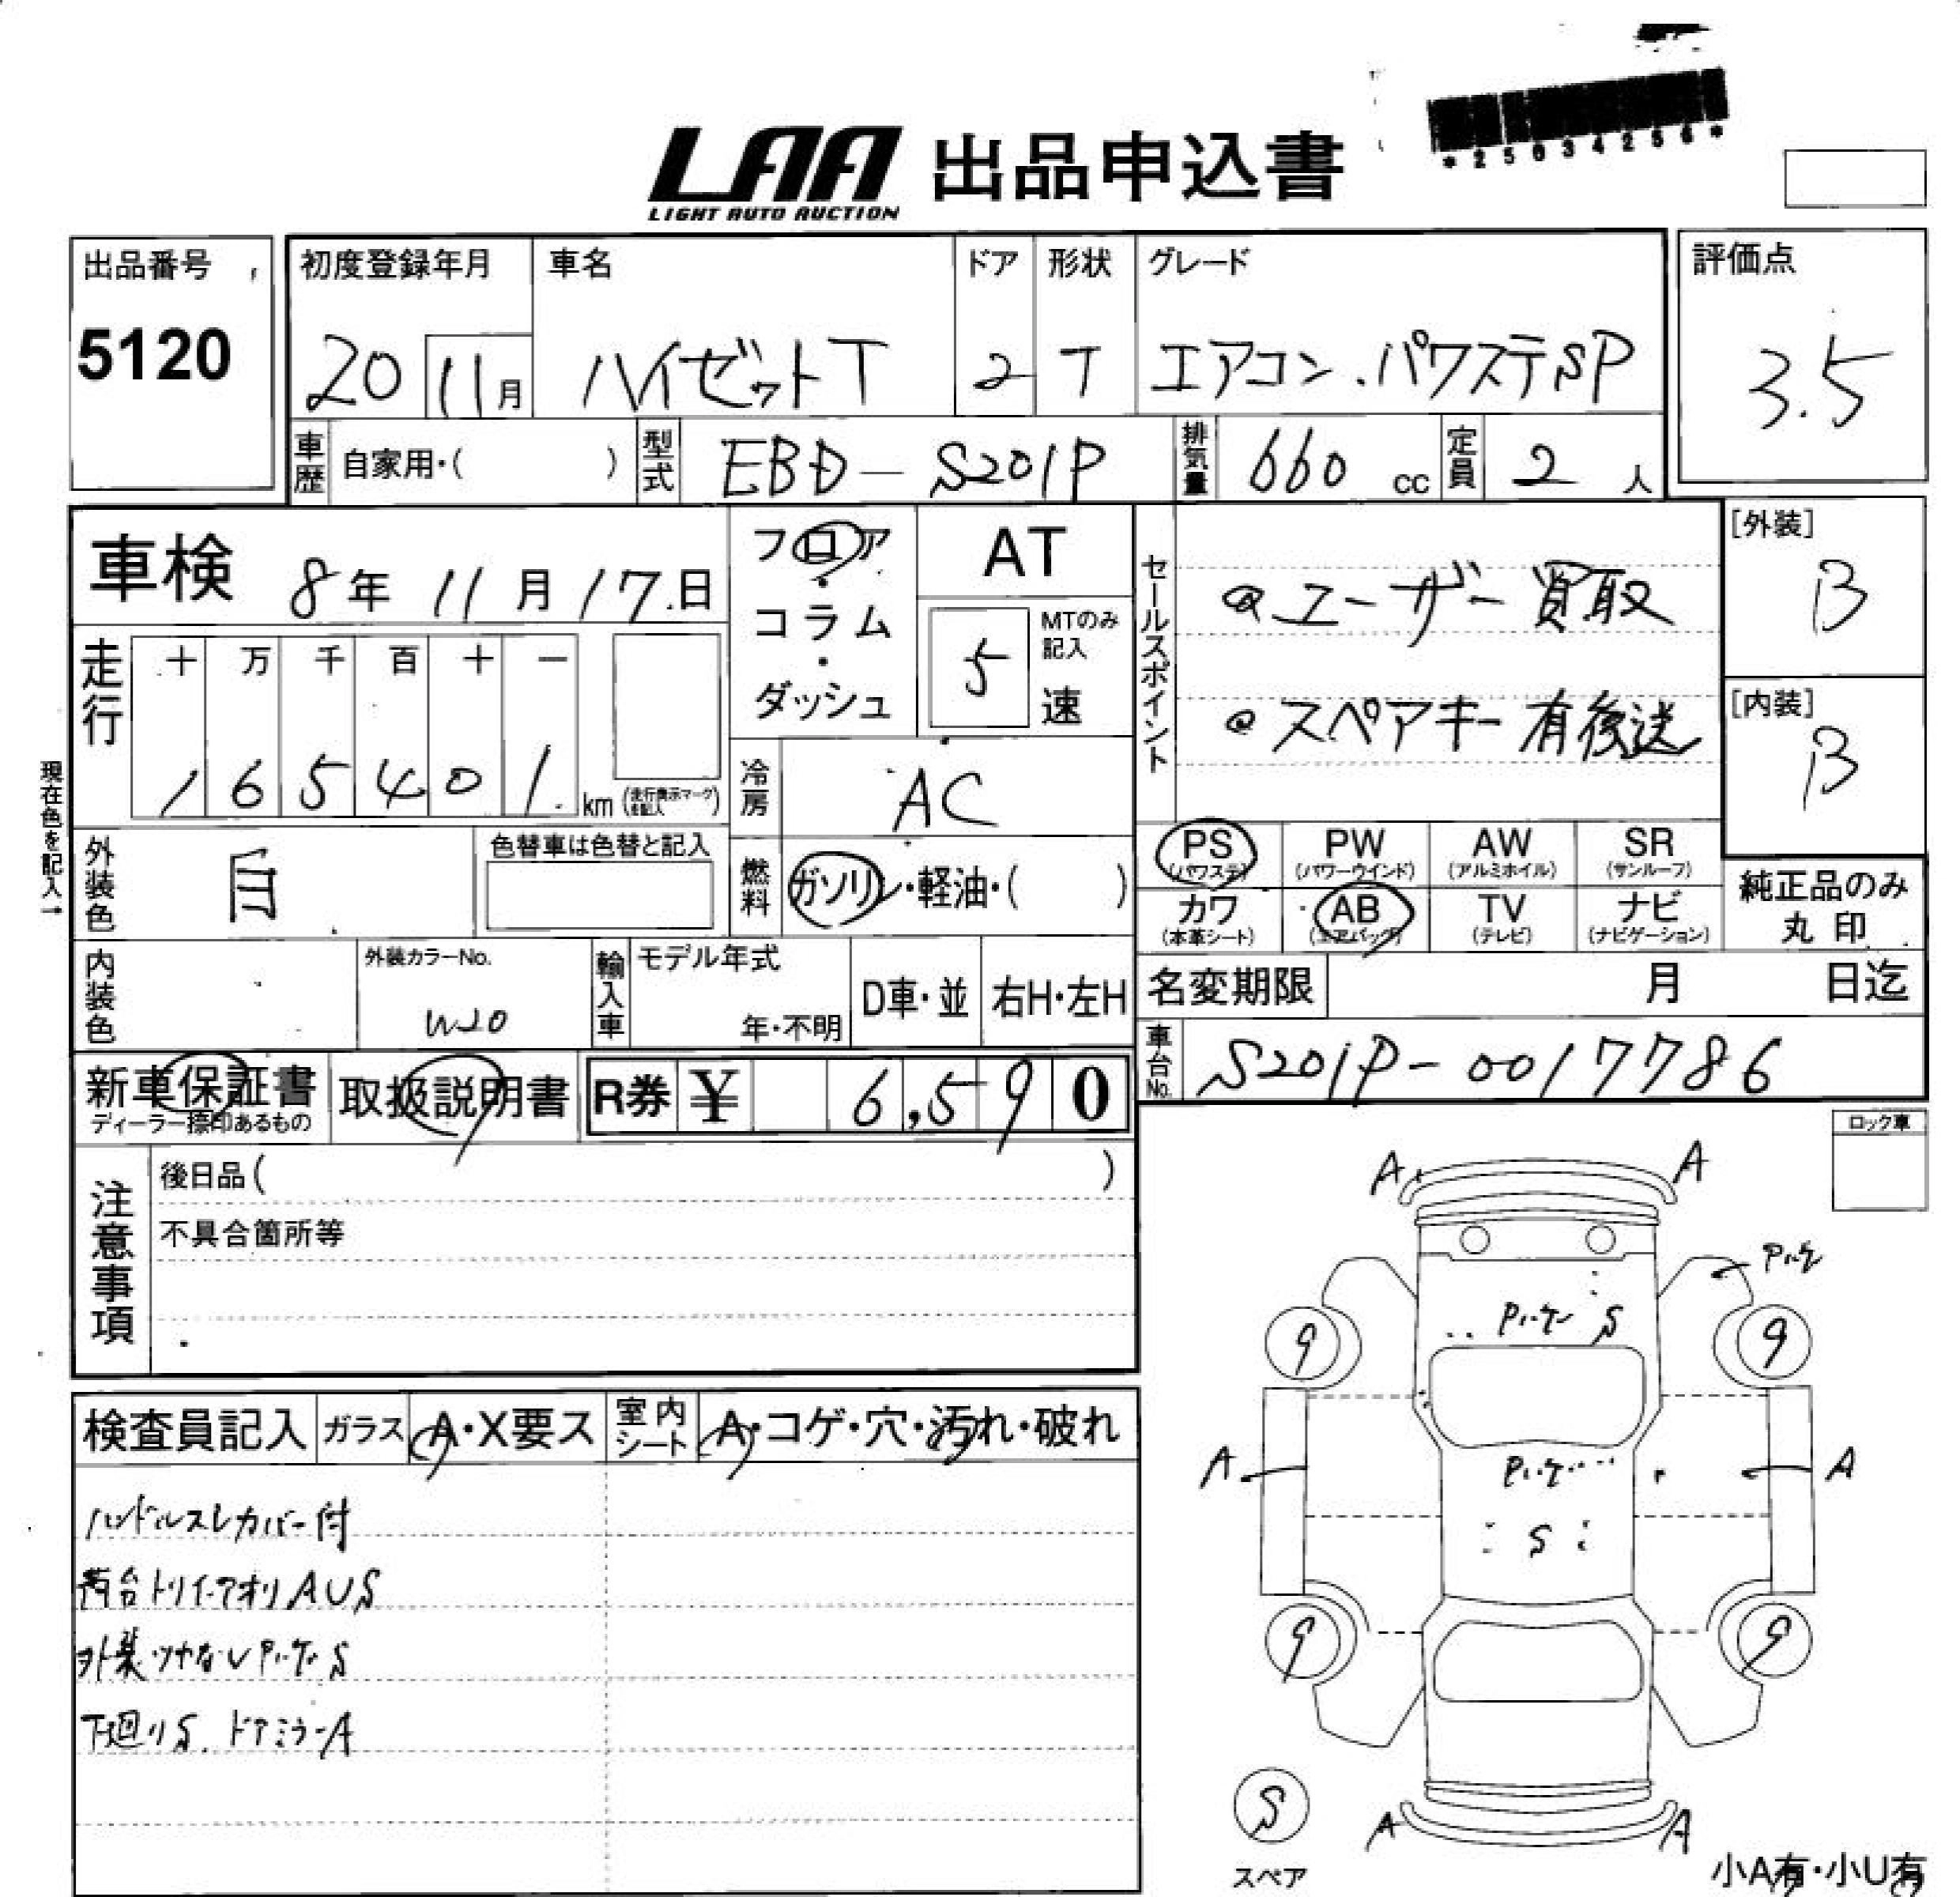 LAA 出品申込書
LIGHT AUTO AUCTION
*25034256*
出品番号
5120
初度登録年月 車名 ドア 形状 グレード
20 11月 ハイゼットT 2 T エアコン.パワステSP
評価点
3.5
車歴 自家用・( ) 型式 EBD-S201P 排気量 660 cc 定員 2 人
車検 8年 11月 17日
フロア・コラム・ダッシュ
AT
5 MTのみ記入 速
セールスポイント
@ユーザー買取
@スペアキー有後送
[外装]
B
[内装]
B
走行 十 万 千 百 十 一
1 6 5 4 0 1 km (走行表示マークを記入)
現在色を記入→
冷房 AC
外装色 白 色替車は色替と記入
燃料 ガソリン・軽油・( )
PS (パワステ) PW (パワーウインド) AW (アルミホイル) SR (サンルーフ)
カワ (本革シート) AB (エアバッグ) TV (テレビ) ナビ (ナビゲーション)
純正品のみ
丸印
内装色 外装カラーNo. W20
輸入車 モデル年式 年・不明 D車・並 右H・左H
名変期限 月 日迄
車台No. S201P-0017786
新車保証書 取扱説明書 R券 ¥ 6,590
ディーラー捺印あるもの
ロック車
注意事項
後日品( )
不具合箇所等
検査員記入 ガラス A・X要ス 室内シート A・コゲ・穴・汚れ・破れ
ハンドルスレカバー付
荷台トリイ・アオリAUS
外装ツヤなしPハゲS
下廻りS. ドアミラーA
A A
Pハゲ
Pハゲ S
9 9
A Pハゲ A
S
9 9
S
スペア
A A
小A有・小U有